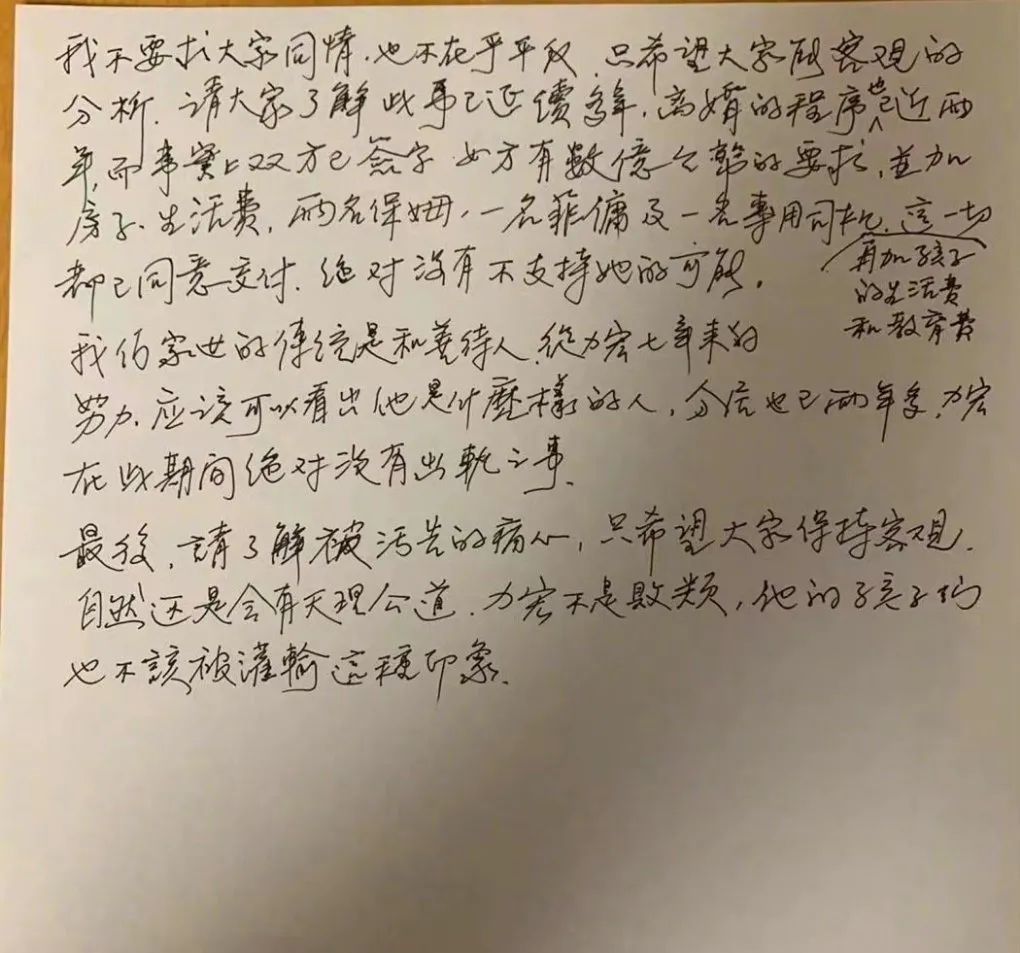 我不要求大家同情.也不在乎平反.只希望大家能客观的
分析.請大家了解此事已延續多年.离婚的程序也已近两
年,而事實上双方已簽字 女方有數億台幣的要求,並加
房子.生活費,兩名保姆,一名菲傭及一名專用司机.這一切
再加孩子
的生活費
和教育費
都已同意交付.绝对没有不支持她的可能.
我们家世的傳統是和善待人.從力宏七年来的
努力.应该可以看出他是什麼樣的人,分居也已两年多,力宏
在此期间绝对没有出軌之事.
最後,請了解被污告的痛心,只希望大家保持客观.
自然还是会有天理公道.力宏不是败类,他的孩子们
也不該被灌輸這種印象.